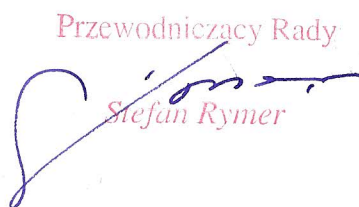 Przewodniczący Rady
Stefan Rymer